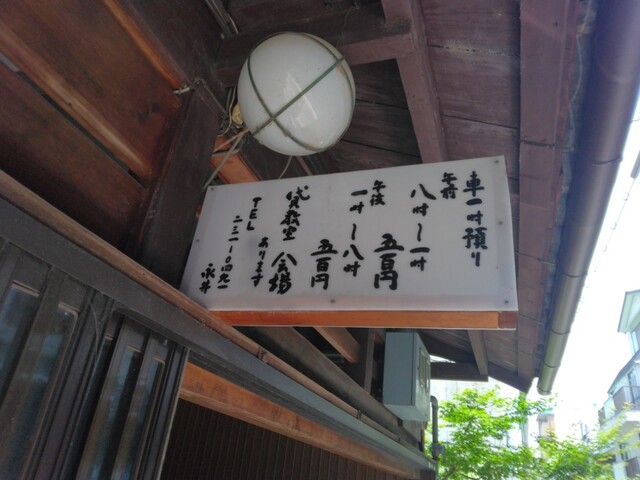 車一時預り
午前
八時〜一時
五百円
午後
一時〜八時
五百円
貸教室 会場
あります
TEL
二三一-〇四九一
永井